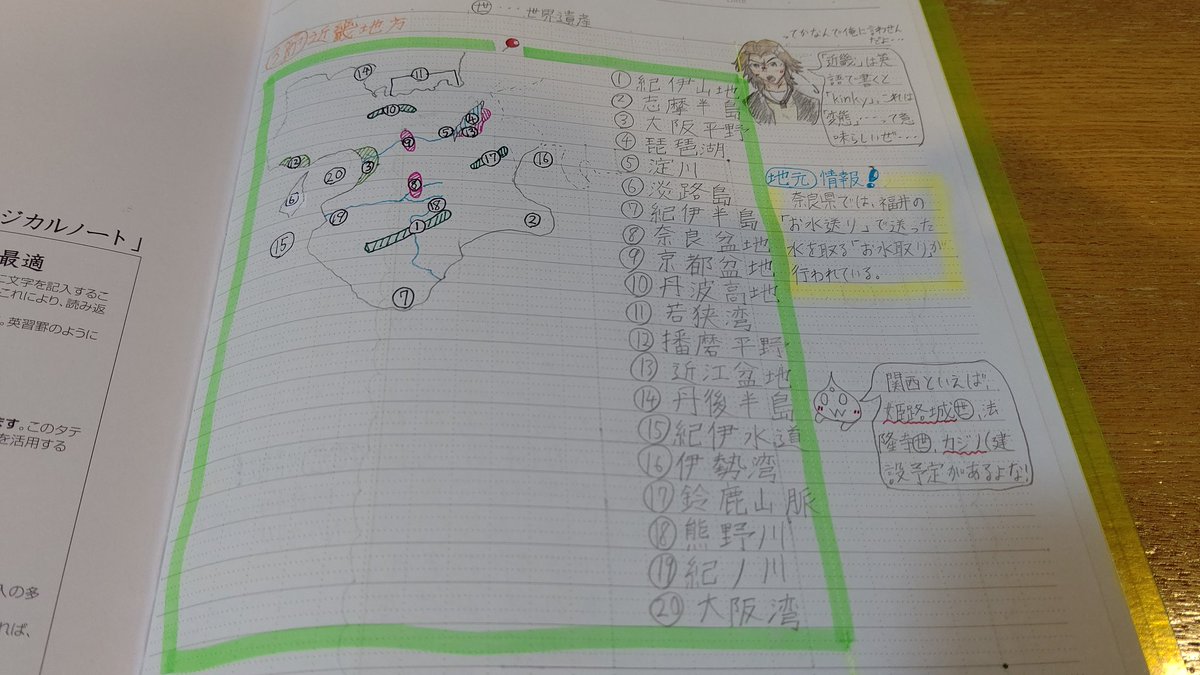 ㊤…世界遺産
近畿地方
①紀伊山地
②志摩半島
③大阪平野
④琵琶湖
⑤淀川
⑥淡路島
⑦紀伊半島
⑧奈良盆地
⑨京都盆地
⑩丹波高地
⑪若狭湾
⑫播磨平野
⑬近江盆地
⑭丹後半島
⑮紀伊水道
⑯伊勢湾
⑰鈴鹿山脈
⑱熊野川
⑲紀ノ川
⑳大阪湾
⑭
⑪
⑩
④
⑤
⑬
⑨
⑰
⑯
⑫
⑳
③
⑥
⑧
⑱
⑲
①
②
⑮
⑦
ってかなんで俺に言わせん
だよ…
「近畿」は英
語で書くと
「kinky」、これは
「変態」…って意
味らしいぜ…
地元情報!
奈良県では、福井の
「お水送り」で送った
水を取る「お水取り」が
行われている。
関西といえば、
姫路城世、法
隆寺世、カジノ(建
設予定があるよな!
ジカルノート」
最適
に文字を記入するこ
これにより、読み返
。英習罫のように
ます。このタテ
を活用する
入の多
れば、